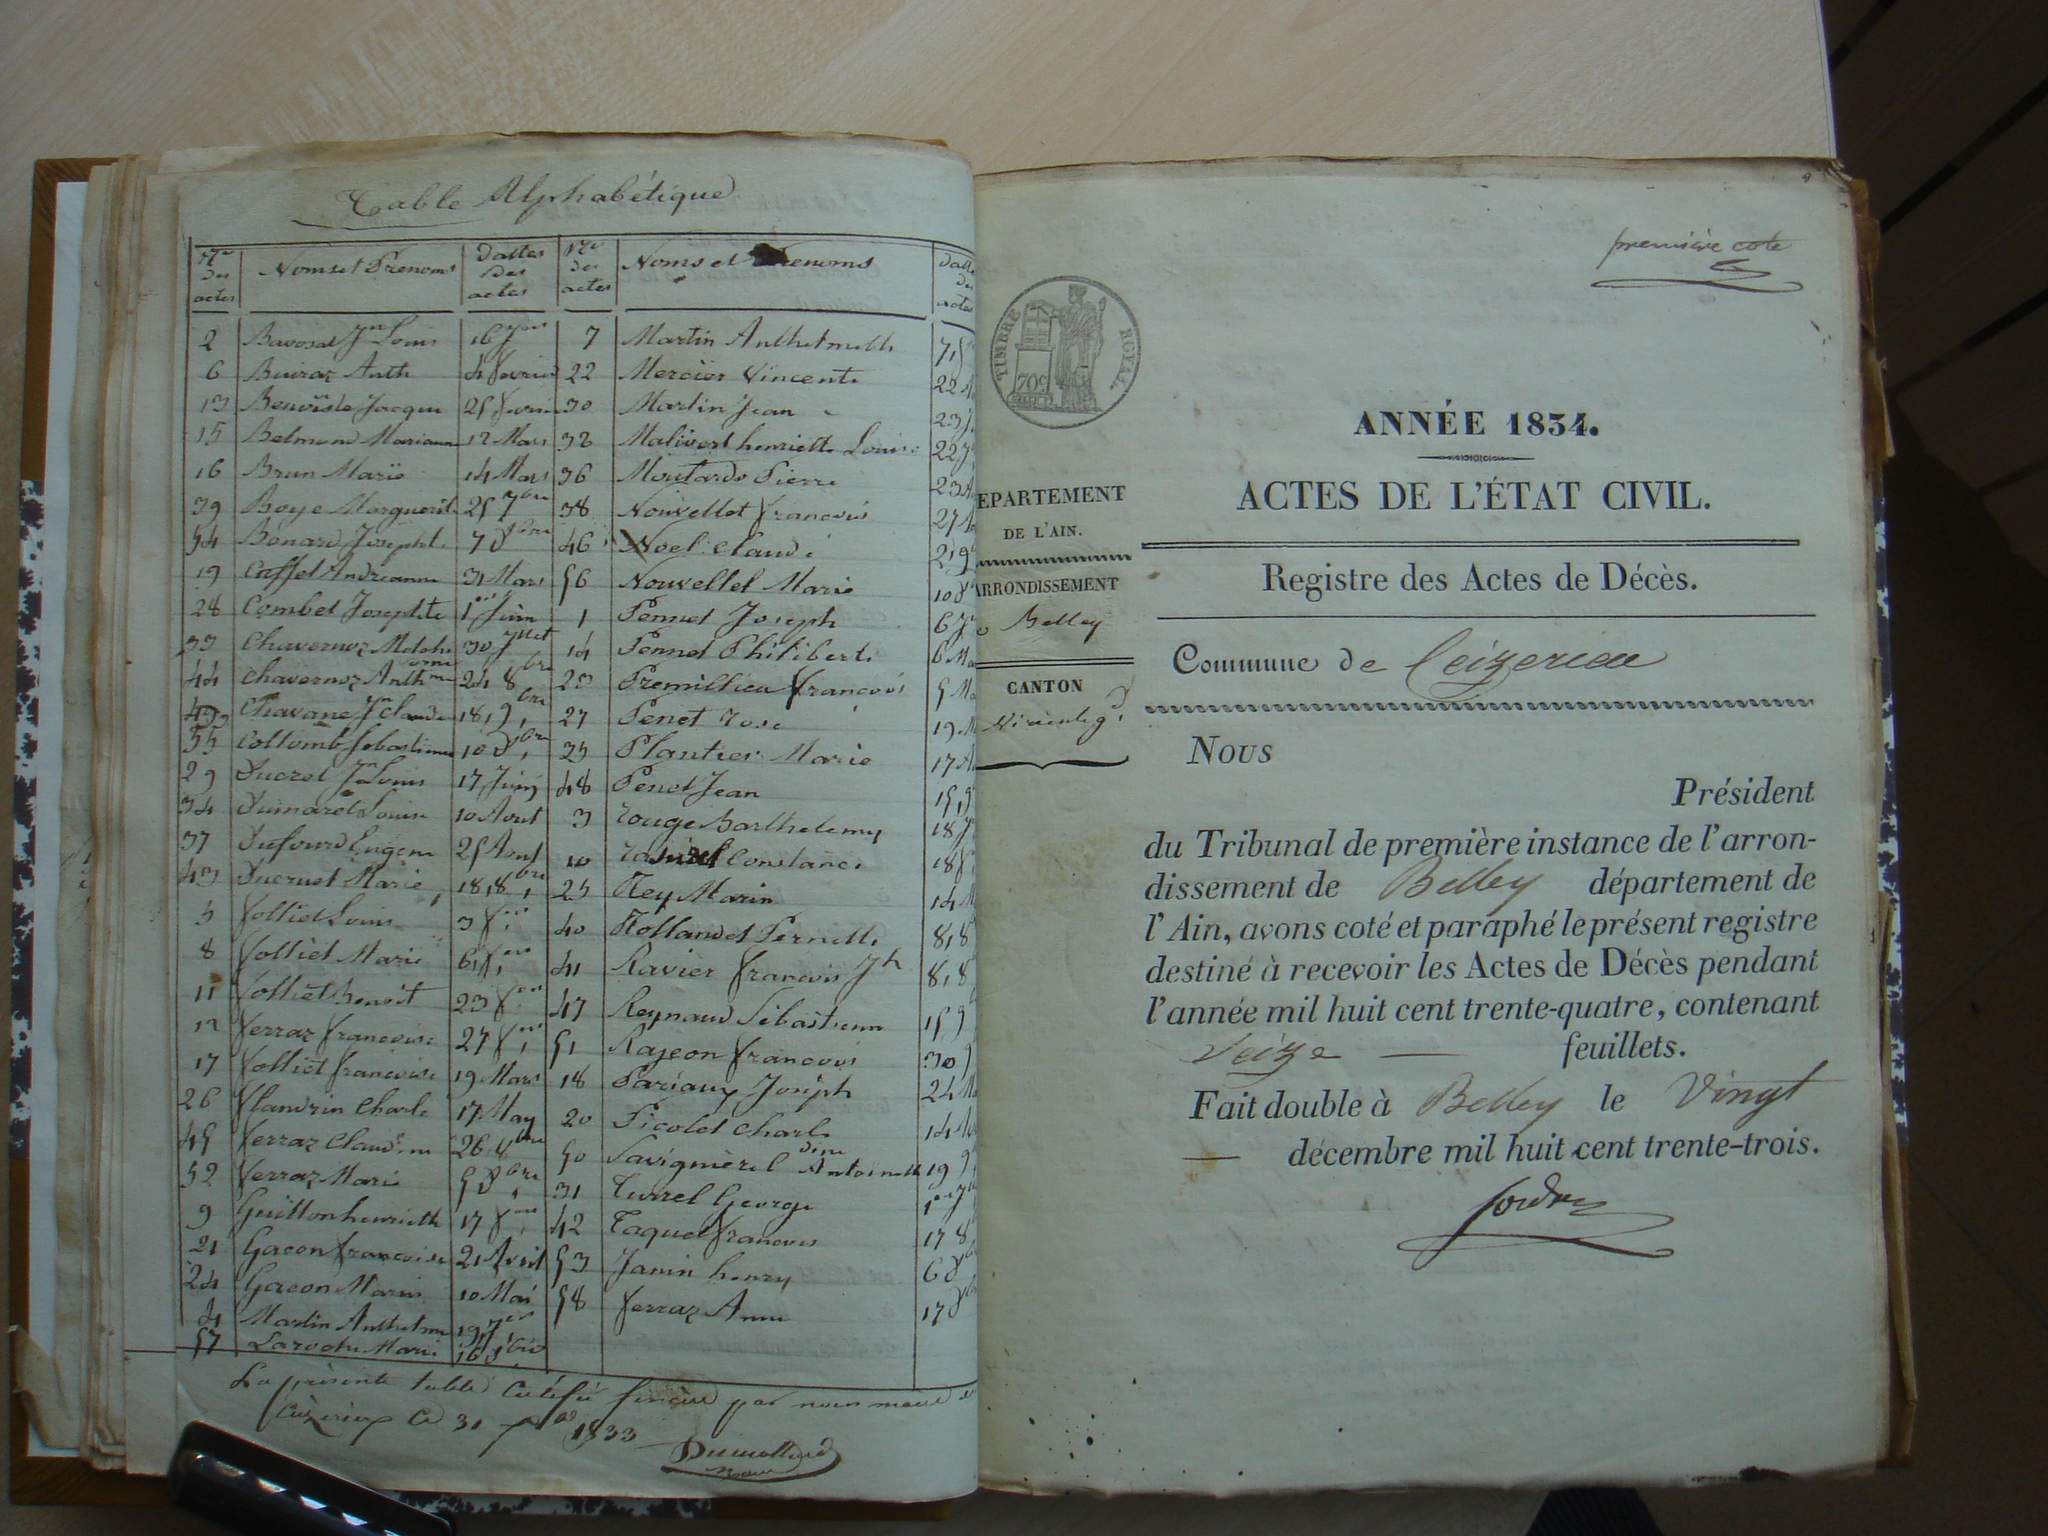 Table Alphabétique
Nos des actes | Noms et Prenoms | Dattes des actes | Nos des actes | Noms et Prenoms | Datt des actes
2 | Bavosat Jn Louis | 16 Jer | 7 | Martin Anthelmette
6 | Buiraz Anth | 4 fevrier | 22 | Mercier Vincent | 22
13 | Benoiste Jacque | 25 fevrier | 30 | Martin Jean | 23
15 | Belmond Marianne | 12 Mars | 32 | Malivert henriette Louise | 22
16 | Brun Marie | 14 Mars | 36 | Moutarde Pierre | 23
39 | Boye Marguerite | 25 7bre | 38 | Nouvellet francois | 27
54 | Bonard Josepht | 7 Xbre | 46 | Noel Claude | 2,9
19 | Caffet Andreanne | 31 Mars | 56 | Nouvellet Marie | 10 X
28 | Combet Josephte | 1er Juin | 1 | Pennet Joseph | 6
33 | Chavernoz Melch | 30 Jllet | 14 | Pennet Philibert | 6 Ma
44 | Chavernoz Anthme | 24 8bre | 23 | Premillieu francois | 5 Ma
49 | Chavane Jn Claude | 18,9bre | 27 | Penet rose | 19 M
55 | Collomb Sebastienne | 10 Xbre | 35 | Plantier Marie | 17 A
29 | Ducret Jn Louis | 17 Juin | 48 | Penet Jean | 15,9
34 | Dumaret Louise | 10 Aout | 3 | rouge Barthelemy | 18 J
37 | Dufourd Eugene | 25 Aout | 10 | Constance | 18 f
43 | Ducruet Marie | 18,8bre | 25 | Rey Marin | 14 M
5 | folliet Louis | 3 fer | 40 | Rollandet Pernette | 8,8
8 | folliet Marie | 6, fer | 41 | Ravier francois Jh | 8,8
11 | folliet benoit | 23 fer | 47 | Reynaud Sebastienne | 15 9
12 | ferraz francoise | 27 fer | 51 | Rajeon francois | 30 9
17 | folliet francoise | 19 Mars | 18 | Pariaux Joseph | 24 Ma
26 | flandrin Charle | 17 May | 20 | Picolet Charle | 14 A
45 | ferraz Claudine | 26,8bre | 50 | Savignerel Antoinette | 19 9
52 | ferraz Marie | 5 Xbre | 31 | Turrel George | 1er
9 | Guitton henriette | 17 fer | 42 | Taquet francois | 17 8
21 | Gacon francoise | 21 Avril | 53 | Janin henry | 6 X
24 | Gacon Marie | 10 Mai | 58 | ferraz Anne | 17 Xb
4 | Martin Anthelme | 19, Jer
57 | Laroche Marie | 16 Xbre
La présente table certifié sincère par nous maire
Ceizerieux ce 31 Xbre 1833
Dumollard
maire
première cote
TIMBRE ROYAL
70c
ANNÉE 1834.
ACTES DE L'ÉTAT CIVIL.
EPARTEMENT
DE L'AIN.
ARRONDISSEMENT
Belley
CANTON
Virieu le gd
Registre des Actes de Décès.
Commune de Ceizerieu
Nous
Président
du Tribunal de première instance de l'arron-
dissement de Belley département de
l'Ain, avons coté et paraphé le présent registre
destiné à recevoir les Actes de Décès pendant
l'année mil huit cent trente-quatre, contenant
Seize — feuillets.
Fait double à Belley le Vingt
— décembre mil huit cent trente-trois.